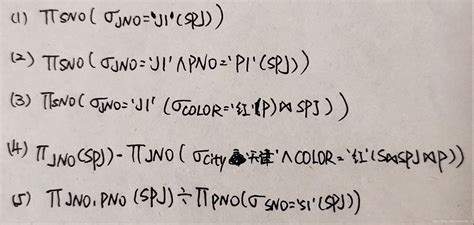 (1) πSNO(σJNO='J1'(SPJ))
(2) πSNO(σJNO='J1'∧PNO='P1'(SPJ))
(3) πSNO(σJNO='J1'(σCOLOR='红'(P)⋈SPJ))
(4) πJNO(SPJ)-πJNO(σCity 天津'∧COLOR='红'(S⋈SPJ⋈P))
(5) πJNO,PNO(SPJ)÷πPNO(σSNO='S1'(SPJ))